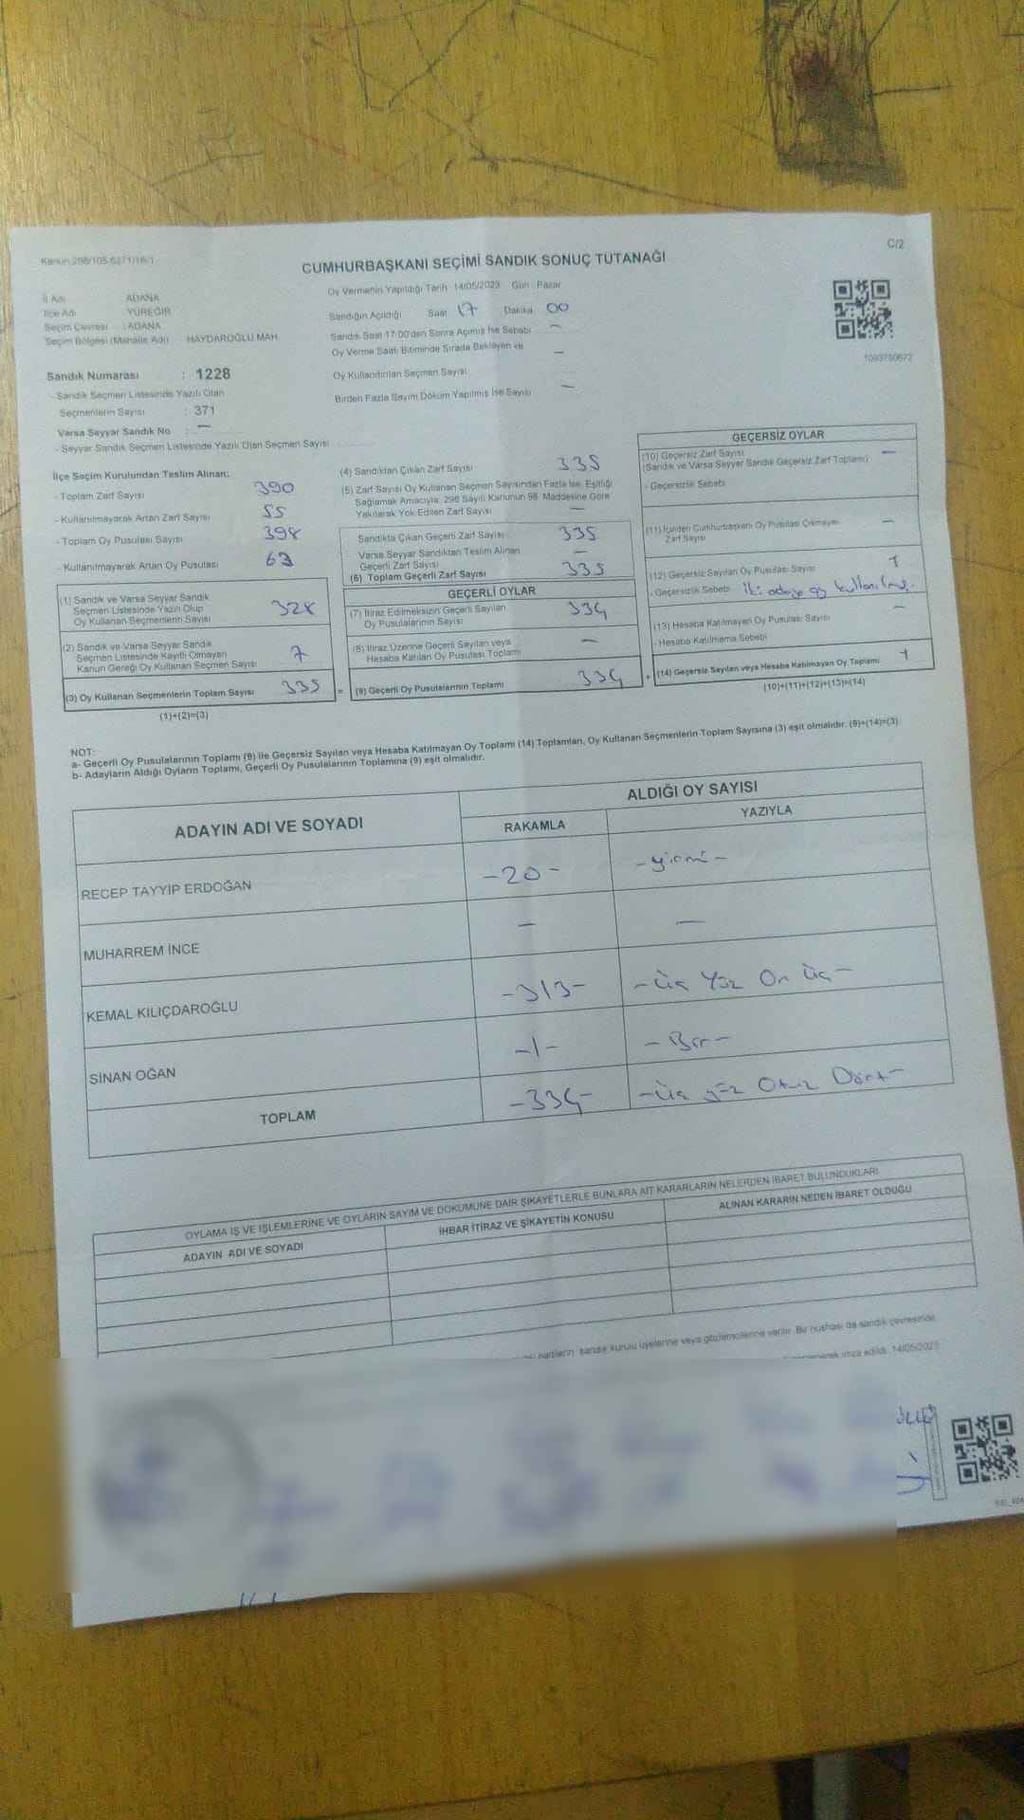 Kanun 298/105-6271/16/1
C/2
CUMHURBAŞKANI SEÇİMİ SANDIK SONUÇ TUTANAĞI
İl Adı ADANA
İlçe Adı YÜREĞİR
Seçim Çevresi : ADANA
Seçim Bölgesi (Mahalle Adı) HAYDAROĞLU MAH.
Sandık Numarası : 1228
- Sandık Seçmen Listesinde Yazılı Olan
Seçmenlerin Sayısı : 371
Varsa Seyyar Sandık No : —
- Seyyar Sandık Seçmen Listesinde Yazılı Olan Seçmen Sayısı
Oy Vermenin Yapıldığı Tarih 14/05/2023 Gün Pazar
Sandığın Açıldığı Saat 17 Dakika 00
Sandık Saat 17:00'den Sonra Açılmış İse Sebebi —
Oy Verme Saati Bitiminde Sırada Bekleyen ve
Oy Kullandırılan Seçmen Sayısı —
Birden Fazla Sayım Döküm Yapılmış İse Sayısı —
1093750672
İlçe Seçim Kurulundan Teslim Alınan:
- Toplam Zarf Sayısı 390
- Kullanılmayarak Artan Zarf Sayısı 55
- Toplam Oy Pusulası Sayısı 398
- Kullanılmayarak Artan Oy Pusulası 63
(1) Sandık ve Varsa Seyyar Sandık
Seçmen Listesinde Yazılı Olup
Oy Kullanan Seçmenlerin Sayısı 328
(2) Sandık ve Varsa Seyyar Sandık
Seçmen Listesinde Kayıtlı Olmayan
Kanun Gereği Oy Kullanan Seçmen Sayısı 7
(3) Oy Kullanan Seçmenlerin Toplam Sayısı 335
(1)+(2)=(3)
(4) Sandıktan Çıkan Zarf Sayısı 335
(5) Zarf Sayısı Oy Kullanan Seçmen Sayısından Fazla İse, Eşitliği
Sağlamak Amacıyla, 298 Sayılı Kanunun 98. Maddesine Göre
Yakılarak Yok Edilen Zarf Sayısı —
Sandıkta Çıkan Geçerli Zarf Sayısı 335
Varsa Seyyar Sandıktan Teslim Alınan
Geçerli Zarf Sayısı —
(6) Toplam Geçerli Zarf Sayısı 335
GEÇERLİ OYLAR
(7) İtiraz Edilmeksizin Geçerli Sayılan
Oy Pusulalarının Sayısı 334
(8) İtiraz Üzerine Geçerli Sayılan veya
Hesaba Katılan Oy Pusulası Toplamı —
= (9) Geçerli Oy Pusulalarının Toplamı 334
GEÇERSİZ OYLAR
(10) Geçersiz Zarf Sayısı —
(Sandık ve Varsa Seyyar Sandık Geçersiz Zarf Toplamı)
- Geçersizlik Sebebi
(11) İçinden Cumhurbaşkanı Oy Pusulası Çıkmayan
Zarf Sayısı —
(12) Geçersiz Sayılan Oy Pusulası Sayısı 1
- Geçersizlik Sebebi İki adaya oy kullanılmış.
(13) Hesaba Katılmayan Oy Pusulası Sayısı —
- Hesaba Katılmama Sebebi
+ (14) Geçersiz Sayılan veya Hesaba Katılmayan Oy Toplamı 1
(10)+(11)+(12)+(13)=(14)
NOT:
a- Geçerli Oy Pusulalarının Toplamı (9) ile Geçersiz Sayılan veya Hesaba Katılmayan Oy Toplamı (14) Toplamları, Oy Kullanan Seçmenlerin Toplam Sayısına (3) eşit olmalıdır. (9)+(14)=(3)
b- Adayların Aldığı Oyların Toplamı, Geçerli Oy Pusulalarının Toplamına (9) eşit olmalıdır.
ADAYIN ADI VE SOYADI
ALDIĞI OY SAYISI
RAKAMLA YAZIYLA
RECEP TAYYİP ERDOĞAN -20- -yirmi-
MUHARREM İNCE — —
KEMAL KILIÇDAROĞLU -313- -üç Yüz On üç-
SİNAN OĞAN -1- -Bir-
TOPLAM -334- -üç yüz Otuz Dört-
OYLAMA İŞ VE İŞLEMLERİNE VE OYLARIN SAYIM VE DÖKÜMÜNE DAİR ŞİKAYETLERLE BUNLARA AİT KARARLARIN NELERDEN İBARET BULUNDUKLARI
ADAYIN ADI VE SOYADI İHBAR İTİRAZ VE ŞİKAYETİN KONUSU ALINAN KARARIN NEDEN İBARET OLDUĞU
partilerin sandık kurulu üyelerine veya gözlemcilerine verilir. Bir nüshası da sandık çevresinde
imza edildi. 14/05/2023